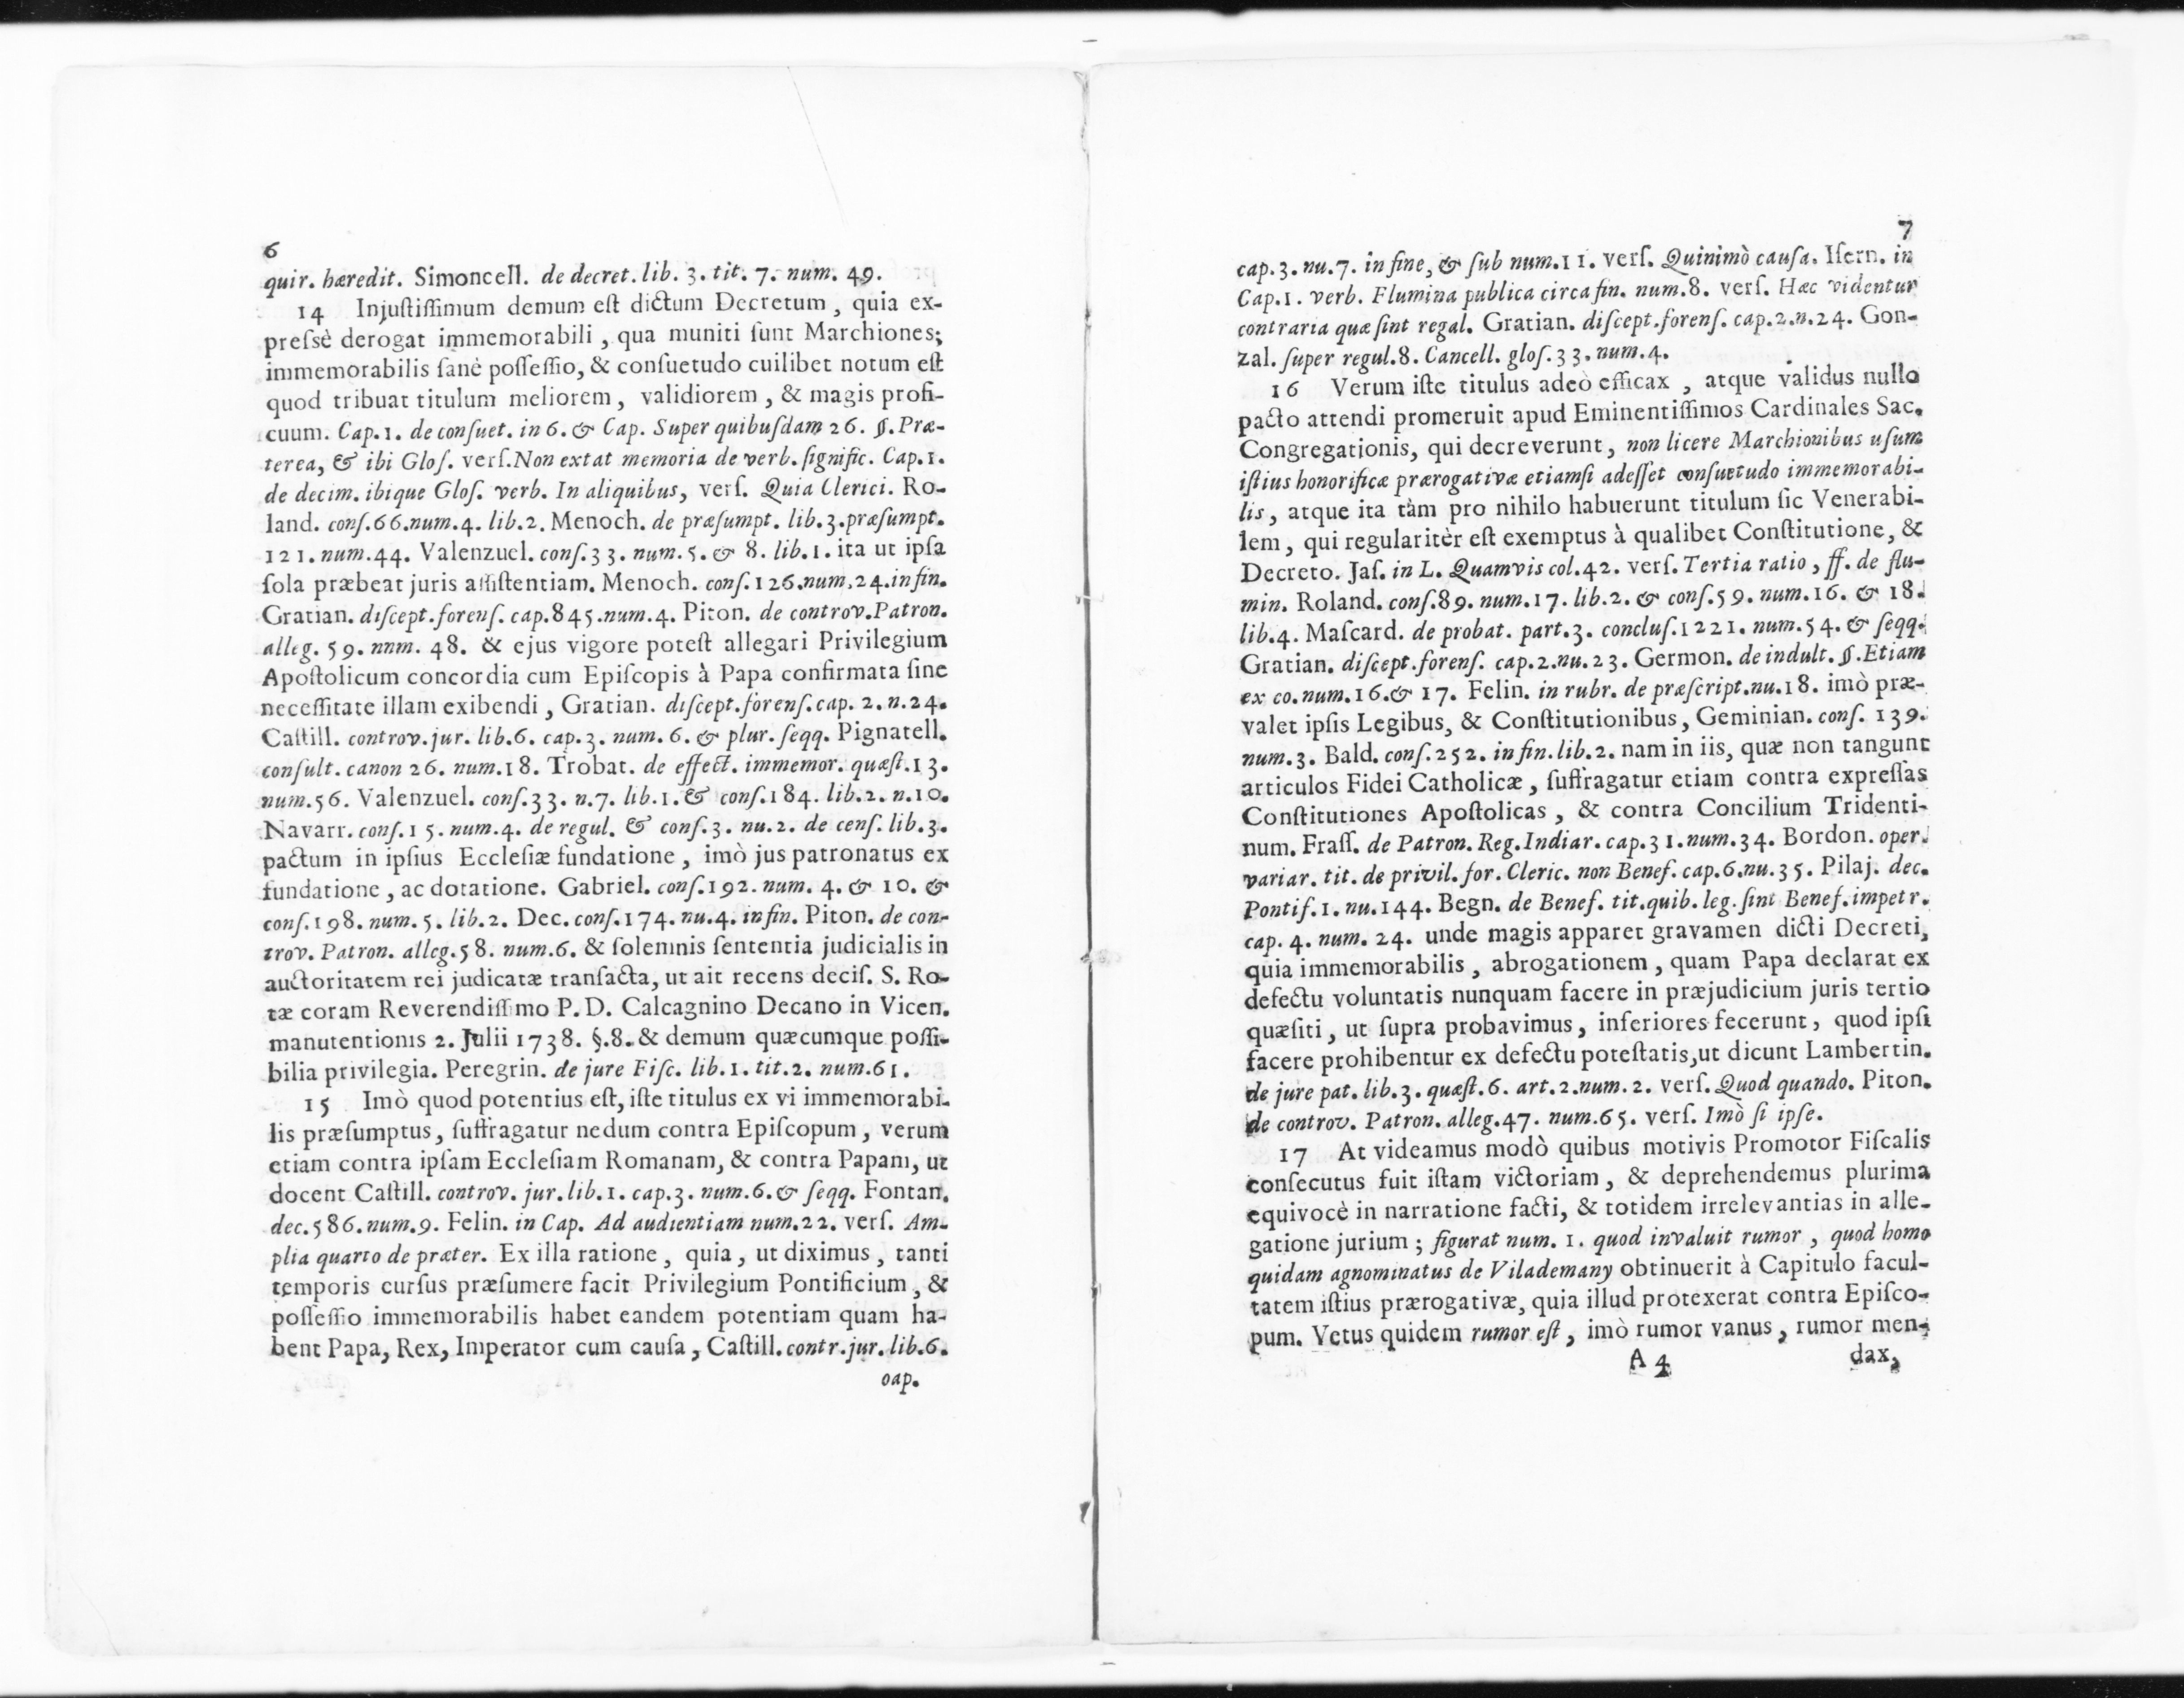 6
quir. hæredit. Simoncell. de decret. lib. 3. tit. 7. num. 49.
14 Injuſtiſſimum demum eſt dictum Decretum, quia ex-
preſsè derogat immemorabili, qua muniti ſunt Marchiones;
immemorabilis ſanè poſſeſſio, & conſuetudo cuilibet notum eſt
quod tribuat titulum meliorem, validiorem, & magis profi-
cuum. Cap. 1. de conſuet. in 6. & Cap. Super quibuſdam 26. §. Præ-
terea, & ibi Gloſ. verſ. Non extat memoria de verb. ſignific. Cap. 1.
de decim. ibique Gloſ. verb. In aliquibus, verſ. Quia Clerici. Ro-
land. conſ.66.num.4. lib.2. Menoch. de præſumpt. lib.3.præſumpt.
121.num.44. Valenzuel. conſ.33. num.5. & 8. lib.1. ita ut ipſa
ſola præbeat juris aſſiſtentiam. Menoch. conſ.126.num.24.in fin.
Gratian. diſcept.forenſ. cap.845.num.4. Piton. de controv.Patron.
alleg. 59. nnm. 48. & ejus vigore poteſt allegari Privilegium
Apoſtolicum concordia cum Epiſcopis à Papa confirmata ſine
neceſſitate illam exibendi, Gratian. diſcept.forenſ.cap. 2.n.24.
Caſtill. controv.jur. lib.6. cap.3. num. 6. & plur. ſeqq. Pignatell.
conſult. canon 26. num.18. Trobat. de effect. immemor. quæſt.13.
num.56. Valenzuel. conſ.33. n.7. lib.1. & conſ.184. lib.2. n.10.
Navarr. conſ.15. num.4. de regul. & conſ.3. nu.2. de cenſ. lib.3.
pactum in ipſius Eccleſiæ fundatione, imò jus patronatus ex
fundatione, ac dotatione. Gabriel. conſ.192. num. 4. & 10. &
conſ.198. num. 5. lib.2. Dec. conſ.174. nu.4. in fin. Piton. de con-
trov. Patron. alleg.58. num.6. & ſolemnis ſententia judicialis in
auctoritatem rei judicatæ tranſacta, ut ait recens deciſ. S. Ro-
tæ coram Reverendiſſimo P. D. Calcagnino Decano in Vicen.
manutentionis 2. Julii 1738. §.8. & demum quæcumque poſſi-
bilia privilegia. Peregrin. de jure Fiſc. lib.1. tit.2. num.61.
15 Imò quod potentius eſt, iſte titulus ex vi immemorabi-
lis præſumptus, ſuffragatur nedum contra Epiſcopum, verum
etiam contra ipſam Eccleſiam Romanam, & contra Papam, ut
docent Caſtill. controv. jur. lib.1. cap.3. num.6. & ſeqq. Fontan.
dec.586.num.9. Felin. in Cap. Ad audientiam num.22. verſ. Am-
plia quarto de præter. Ex illa ratione, quia, ut diximus, tanti
temporis curſus præſumere facit Privilegium Pontificium, &
poſſeſſio immemorabilis habet eandem potentiam quam ha-
bent Papa, Rex, Imperator cum cauſa, Caſtill. contr.jur. lib.6.
oap.
7
cap.3. nu.7. in fine, & ſub num.11. verſ. Quinimò cauſa. Iſern. in
Cap.1. verb. Flumina publica circa fin. num.8. verſ. Hæc videntur
contraria quæ ſint regal. Gratian. diſcept.forenſ. cap.2.n.24. Gon-
zal. ſuper regul.8. Cancell. gloſ.33. num.4.
16 Verum iſte titulus adeò efficax, atque validus nullo
pacto attendi promeruit apud Eminentiſſimos Cardinales Sac.
Congregationis, qui decreverunt, non licere Marchionibus uſum
iſtius honorificæ prærogativæ etiamſi adeſſet conſuetudo immemorabi-
lis, atque ita tàm pro nihilo habuerunt titulum ſic Venerabi-
lem, qui regularitèr eſt exemptus à qualibet Conſtitutione, &
Decreto. Jaſ. in L. Quamvis col.42. verſ. Tertia ratio, ff. de flu-
min. Roland. conſ.89. num.17. lib.2. & conſ.59. num.16. & 18.
lib.4. Maſcard. de probat. part.3. concluſ.1221. num.54. & ſeqq.
Gratian. diſcept.forenſ. cap.2.nu.23. Germon. de indult. §. Etiam
ex eo.num.16. & 17. Felin. in rubr. de præſcript.nu.18. imò præ-
valet ipſis Legibus, & Conſtitutionibus, Geminian. conſ. 139.
num.3. Bald. conſ.252. in fin.lib.2. nam in iis, quæ non tangunt
articulos Fidei Catholicæ, ſuffragatur etiam contra expreſſas
Conſtitutiones Apoſtolicas, & contra Concilium Tridenti-
num. Fraſſ. de Patron. Reg.Indiar. cap.31.num.34. Bordon. oper.
variar. tit. de privil. for. Cleric. non Benef. cap.6.nu.35. Pilaj. dec.
Pontif.1. nu.144. Begn. de Benef. tit.quib. leg. ſint Benef. impetr.
cap. 4. num. 24. unde magis apparet gravamen dicti Decreti,
quia immemorabilis, abrogationem, quam Papa declarat ex
defectu voluntatis nunquam facere in præjudicium juris tertio
quæſiti, ut ſupra probavimus, inferiores fecerunt, quod ipſi
facere prohibentur ex defectu poteſtatis, ut dicunt Lambertin.
de jure pat. lib.3. quæſt.6. art.2.num.2. verſ. Quod quando. Piton.
de controv. Patron. alleg.47. num.65. verſ. Imò ſi ipſe.
17 At videamus modò quibus motivis Promotor Fiſcalis
conſecutus fuit iſtam victoriam, & deprehendemus plurima
equivocè in narratione facti, & totidem irrelevantias in alle-
gatione jurium; figurat num. 1. quod invaluit rumor, quod homo
quidam agnominatus de Vilademany obtinuerit à Capitulo facul-
tatem iſtius prærogativæ, quia illud protexerat contra Epiſco-
pum. Vetus quidem rumor eſt, imò rumor vanus, rumor men-
A 4 dax,